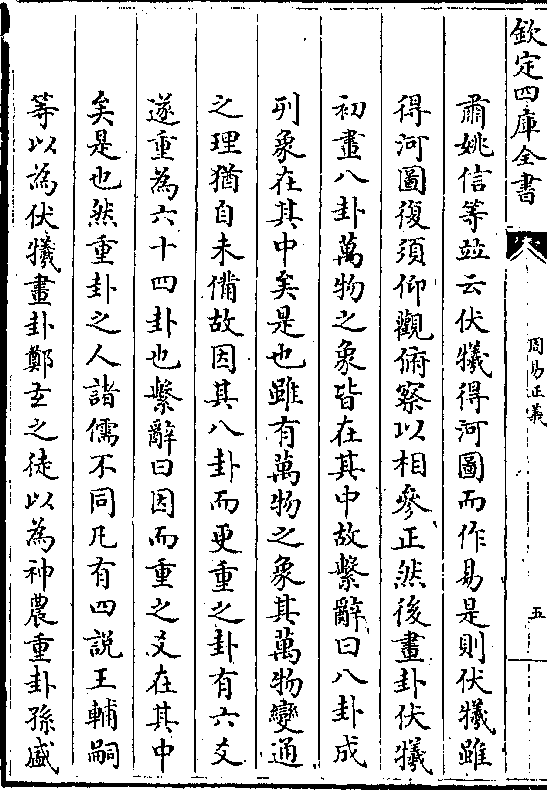 欽定四庫全書
周易正義
五
肅姚信等竝云伏犧得河圖而作易是則伏犧雖
得河圖復須仰觀俯察以相參正然後畫卦伏犧
初畫八卦萬物之象皆在其中故繫辭曰八卦成
列象在其中矣是也雖有萬物之象其萬物變通
之理猶自未備故因其八卦而更重之卦有六爻
遂重為六十四卦也繫辭曰因而重之爻在其中
矣是也然重卦之人諸儒不同凡有四說王輔嗣
等以為伏犧畫卦鄭𤣥之徒以為神農重卦孫盛